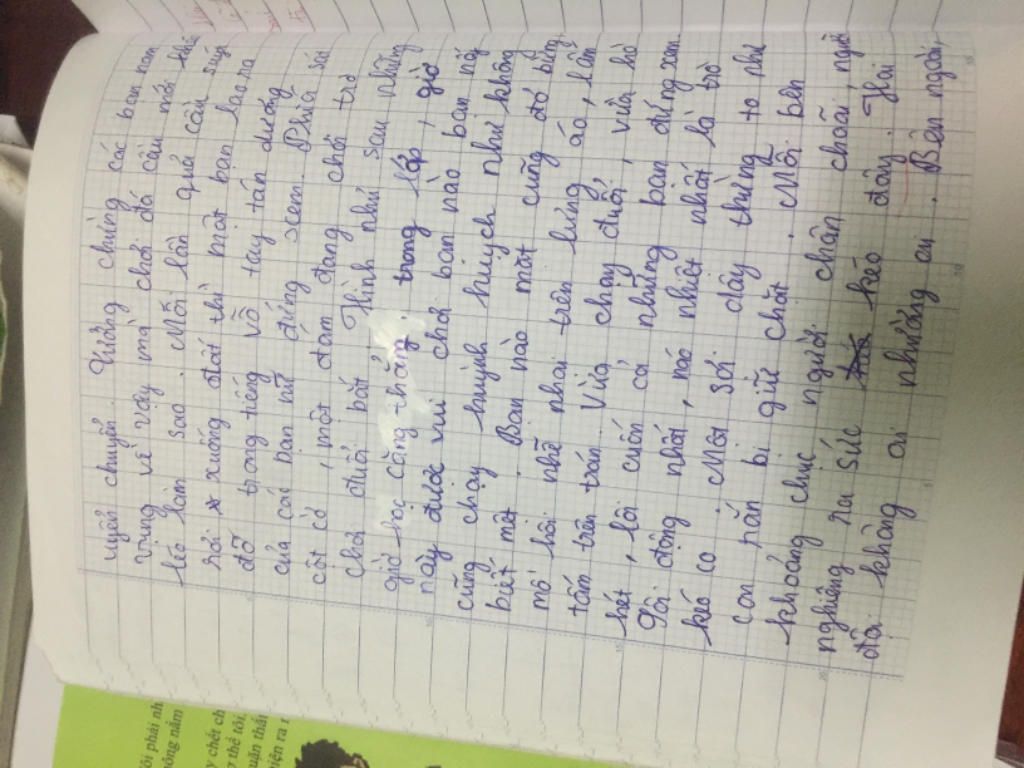 uyển chuyển. Tưởng chừng các bạn nam
vụng về vậy mà chơi đá cầu mới khéo
léo làm sao. Mỗi lần quả cầu sắp
rơi xuống đất thì một bạn lao ra
đỡ trong tiếng vỗ tay tán dương
của các bạn nữ đứng xem. Phía sát
cột cờ có một đám đang chơi trò
chơi đuổi bắt. Hình như sau những
giờ học căng thẳng trong lớp, giờ
này được vui chơi bạn nào bạn nấy
cũng chạy huỳnh huỵch như không
biết mệt. Bạn nào mặt cũng đỏ bừng,
mồ hôi nhễ nhại trên lưng áo, lấm
tấm trên trán. Vừa chạy đuổi, vừa hò
hét, lôi cuốn cả những bạn đứng xem.
Sôi động nhất, náo nhiệt nhất là trò
kéo co. Một sợi dây thừng to như
con rắn bị giữ chặt. Mỗi bên
khoảng chục người chân choãi, người
nghiêng ra sức kéo đẩy. Hai
đội không ai nhường ai. Bên ngoài,
ôi phải nh
ông nắm
y chết ch
thể tôi.
uận thấ
iện ra r